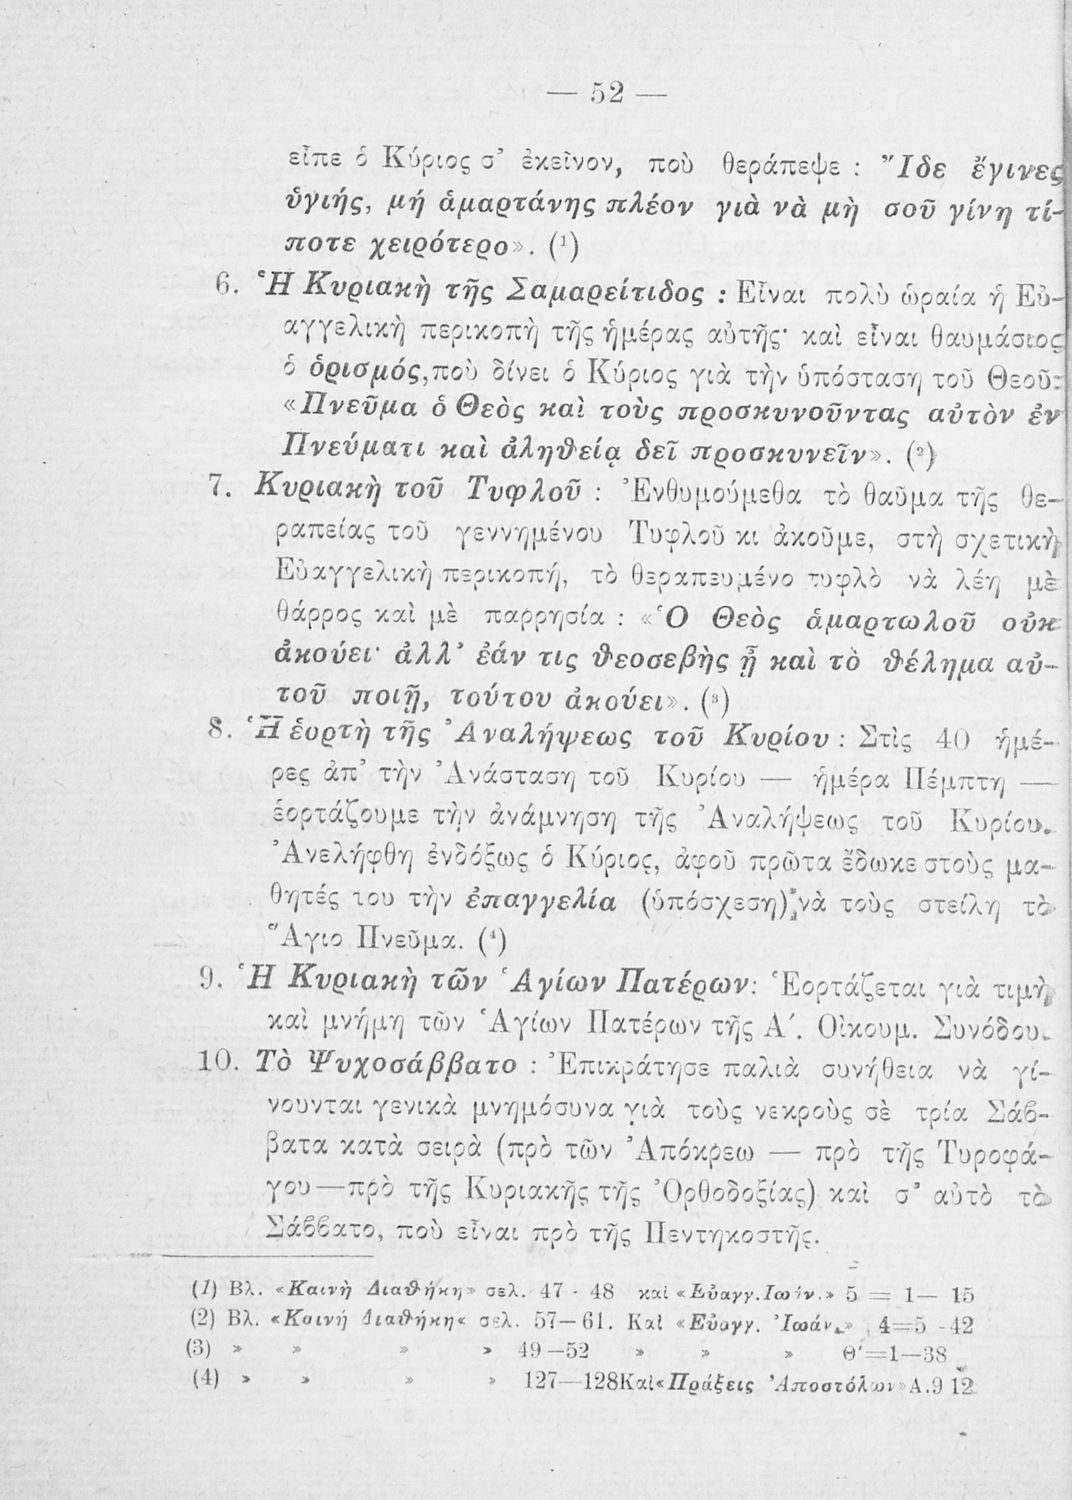 — 52 —
εἶπε ὁ Κύριος σ' ἐκεῖνον, ποὺ θεράπεψε : "Ἴδε ἔγινες
ὑγιής, μή ἁμαρτάνης πλέον γιὰ νὰ μὴ σοῦ γίνη τί-
ποτε χειρότερο». (¹)
6. Ἡ Κυριακὴ τῆς Σαμαρείτιδος : Εἶναι πολὺ ὡραία ἡ Εὐ-
αγγελικὴ περικοπὴ τῆς ἡμέρας αὐτῆς· καὶ εἶναι θαυμάσιος
ὁ ὁρισμός, ποὺ δίνει ὁ Κύριος γιὰ τὴν ὑπόσταση τοῦ Θεοῦ:
«Πνεῦμα ὁ Θεὸς καὶ τοὺς προσκυνοῦντας αὐτὸν ἐν
Πνεύματι καὶ ἀληθείᾳ δεῖ προσκυνεῖν». (²)
7. Κυριακὴ τοῦ Τυφλοῦ : Ἐνθυμούμεθα τὸ θαῦμα τῆς θε-
ραπείας τοῦ γεννημένου Τυφλοῦ κι ἀκοῦμε, στὴ σχετικὴ
Εὐαγγελικὴ περικοπή, τὸ θεραπευμένο τυφλὸ νὰ λέη μὲ
θάρρος καὶ μὲ παρρησία : «Ὁ Θεὸς ἁμαρτωλοῦ οὐκ
ἀκούει· ἀλλ' ἐάν τις θεοσεβὴς ᾖ καὶ τὸ θέλημα αὐ-
τοῦ ποιῇ, τούτου ἀκούει». (³)
8. Ἡ ἑορτὴ τῆς Ἀναλήψεως τοῦ Κυρίου : Στὶς 40 ἡμέ-
ρες ἀπ' τὴν Ἀνάσταση τοῦ Κυρίου — ἡμέρα Πέμπτη —
ἑορτάζουμε τὴν ἀνάμνηση τῆς Ἀναλήψεως τοῦ Κυρίου.
Ἀνελήφθη ἐνδόξως ὁ Κύριος, ἀφοῦ πρῶτα ἔδωκε στοὺς μα-
θητές του τὴν ἐπαγγελία (ὑπόσχεση) νὰ τοὺς στείλη τὸ
Ἅγιο Πνεῦμα. (⁴)
9. Ἡ Κυριακὴ τῶν Ἁγίων Πατέρων: Ἑορτάζεται γιὰ τιμὴ
καὶ μνήμη τῶν Ἁγίων Πατέρων τῆς Α΄. Οἰκουμ. Συνόδου.
10. Τὸ Ψυχοσάββατο : Ἐπικράτησε παλιὰ συνήθεια νὰ γί-
νουνται γενικὰ μνημόσυνα γιὰ τοὺς νεκροὺς σὲ τρία Σάβ-
βατα κατὰ σειρὰ (πρὸ τῶν Ἀπόκρεω — πρὸ τῆς Τυροφά-
γου—πρὸ τῆς Κυριακῆς τῆς Ὀρθοδοξίας) καὶ σ' αὐτὸ τὸ
Σάββατο, ποὺ εἶναι πρὸ τῆς Πεντηκοστῆς.
(1) Βλ. «Καινὴ Διαθήκη» σελ. 47 - 48 καὶ «Εὐαγγ. Ἰωάν.» 5 = 1— 15
(2) Βλ. «Καινή Διαθήκη« σελ. 57—61. Καὶ «Εὐαγγ. Ἰωάν.» , 4=5 -42
(3) » » » » 49—52 » » » Θ΄=1—38
(4) » » » » 127—128 Καὶ «Πράξεις Ἀποστόλων» Α.9 12